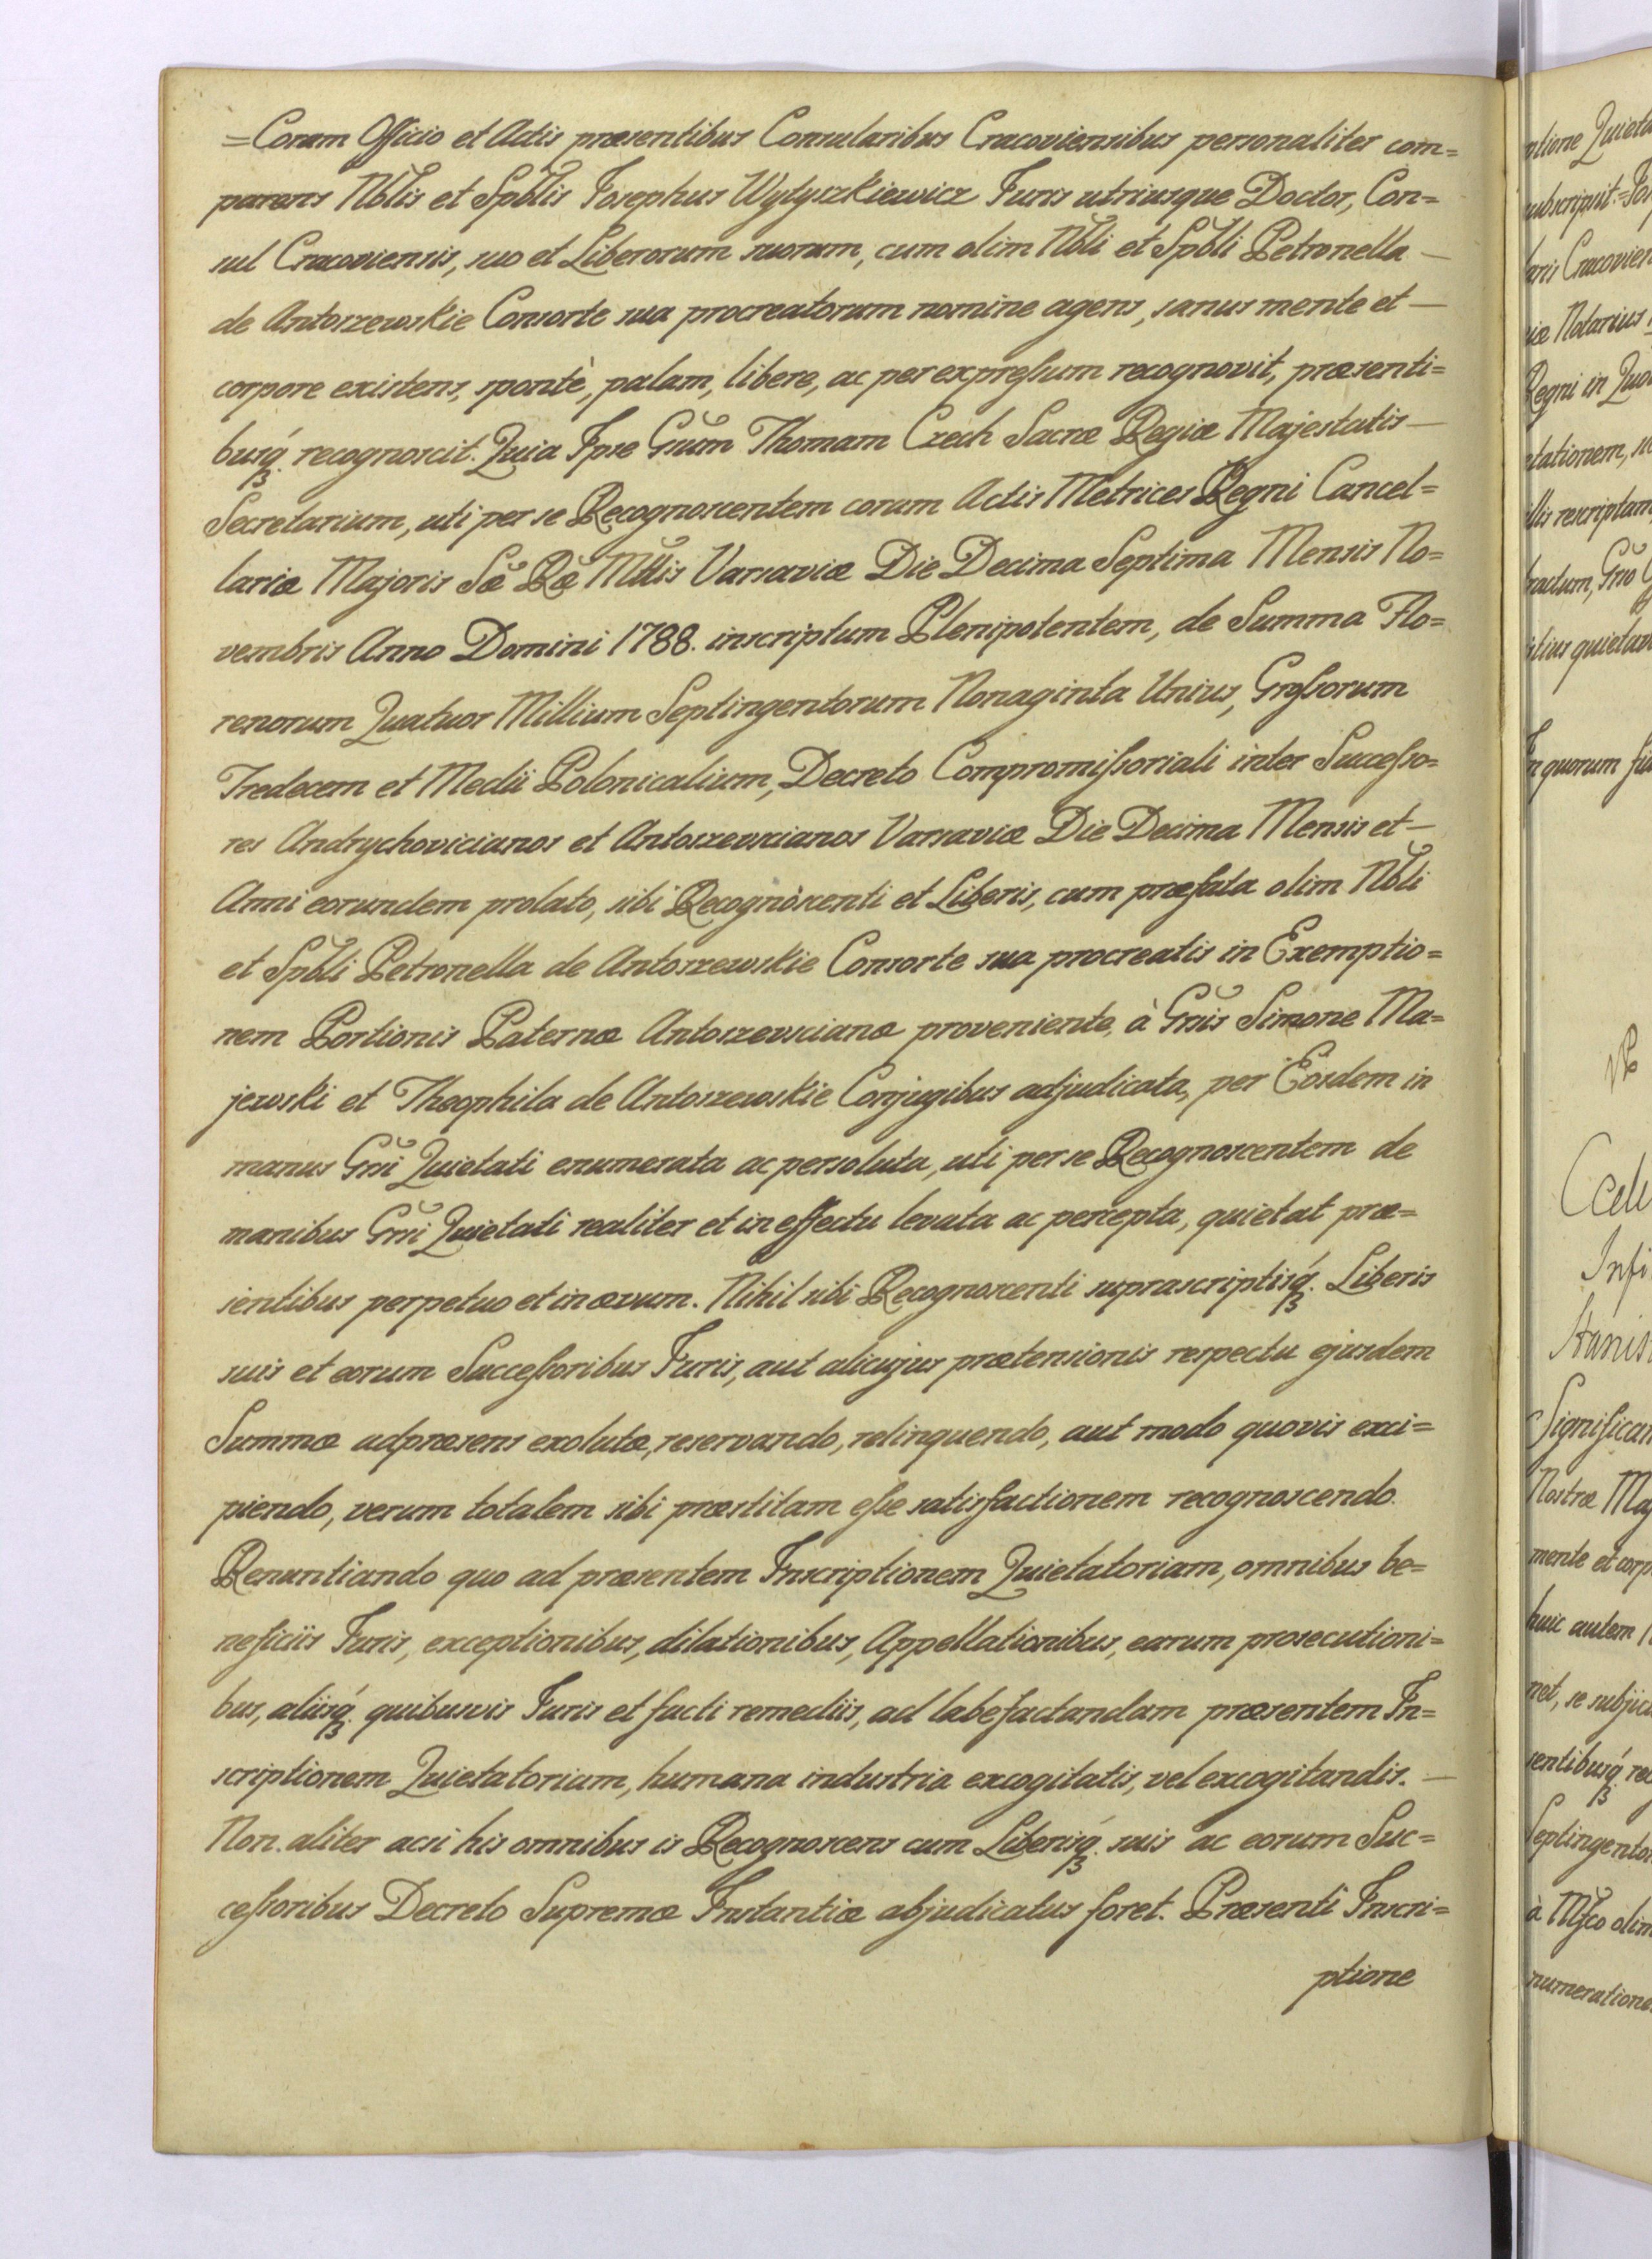 =Coram Officio et Actis præsentibus Consularibus Cracoviensibus personaliter com=
parens Nb̃lis et Spb̃lis Josephus Wytyszkiewicz Juris utriusque Doctor, Con=
sul Cracoviensis, suo et Liberorum suorum, cum olim Nb̃li et Spb̃li Petronella —
de Antoszewskie Consorte sua procreatorum nomine agens, sanus mente et —
corpore existens, spontè, palam, libere, ac per expressum recognovit, præsenti=
busq́ꝫ recognoscit. Quia Ipse Gñum Thomam Czech Sacræ Regiæ Majestatis —
Secretarium, uti per se Recognoscentem coram Actis Metrices Regni Cancel=
lariæ Majoris Sæ̃ Ræ̃ Mt̃tis Varsaviæ Die Decima Septima Mensis No=
vembris Anno Domini 1788. inscriptum Plenipotentem, de Summa Flo=
renorum Quatuor Millium Septingentorum Nonaginta Unius, Grossorum
Tredecem et Medii Polonicalium, Decreto Compromissoriali inter Successo=
res Andrychovicianos et Antoszevscianos Varsaviæ Die Decima Mensis et —
Anni eorundem prolato, sibi Recognoscenti et Liberis, cum præfata olim Nb̃li
et Spb̃li Petronella de Antoszewskie Consorte sua procreatis in Exemptio=
nem Portionis Paternæ Antoszevscianæ proveniente, à Gñis Simone Ma=
jewski et Theophila de Antoszewskie Conjugibus adjudicata, per Eosdem in
manus Gñi Quietati enumerata ac persoluta, uti per se Recognoscentem de
manibus Gñi Quietati realiter et in effectu levata ac percepta, quietat præ=
sentibus perpetuo et in ævum. Nihil sibi Recognoscenti suprascriptisq́ꝫ. Liberis
suis et eorum Successoribus Juris, aut alicujus prætensionis respectu ejusdem
Summæ adpræsens exolutæ, reservando, relinquendo, aut modo quovis exci=
piendo, verum totalem sibi præstitam esse satisfactionem recognoscendo.
Renuntiando quo ad præsentem Inscriptionem Quietatoriam, omnibus be=
neficiis Juris, exceptionibus, dilationibus, Appellationibus, earum prosecutioni=
bus, aliisq́ꝫ. quibusvis Juris et facti remediis, ad labefactandam præsentem In=
scriptionem Quietatoriam, humana industria excogitatis, vel excogitandis. —
Non aliter acsi his omnibus is Recognoscens cum Liberisq́ꝫ. suis ac eorum Suc=
cessoribus Decreto Supremæ Instantiæ abjudicatus foret. Præsenti Inscri=
ptione